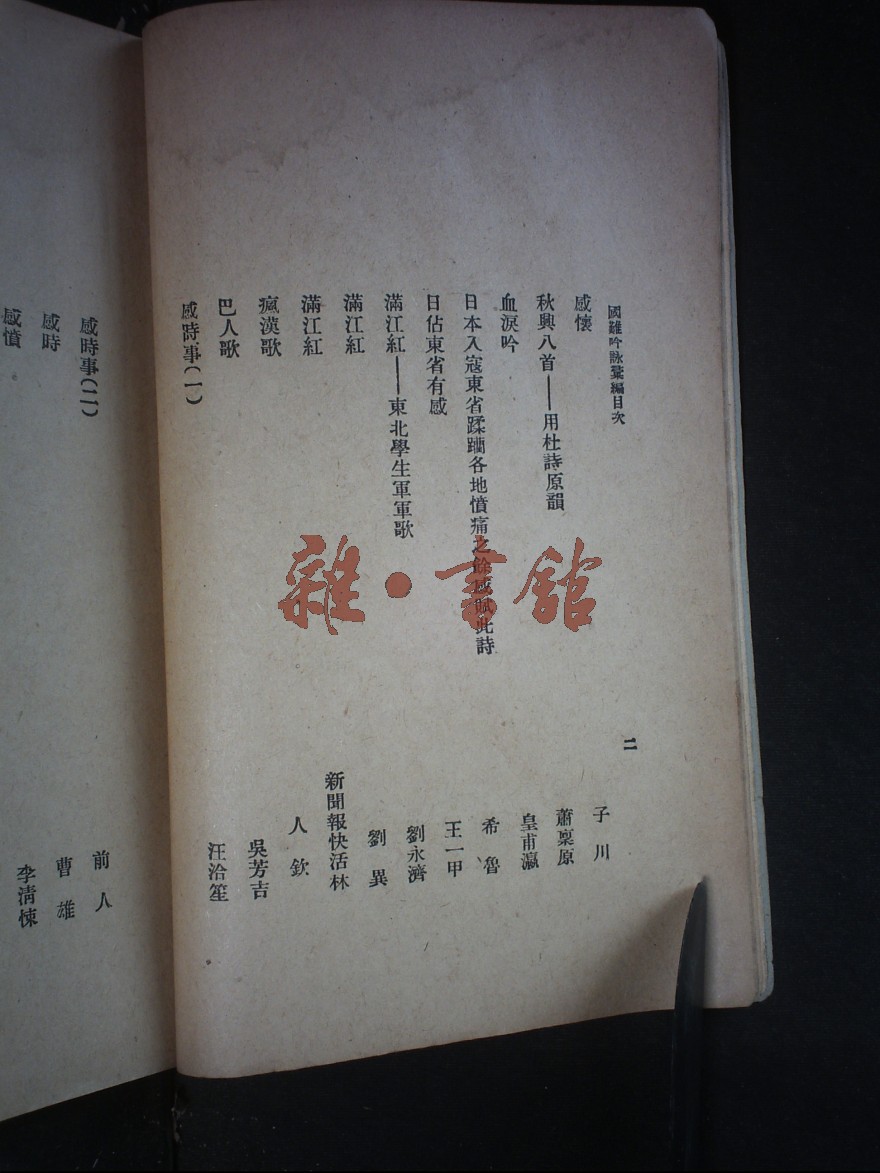 國難吟詠彙編目次
二
感懷 子川
秋興八首——用杜詩原韻 蕭稟原
血淚吟 皇甫瀛
日本入寇東省蹂躪各地憤痛之餘感賦此詩 希魯
日佔東省有感 王一甲
滿江紅——東北學生軍軍歌 劉永濟
滿江紅 劉異
滿江紅 新聞報快活林
瘋漢歌 人欽
巴人歌 吳芳吉
感時事(一) 汪洽笙
感時事(二) 前人
感時 曹雄
感憤 李清悚
雜·書館